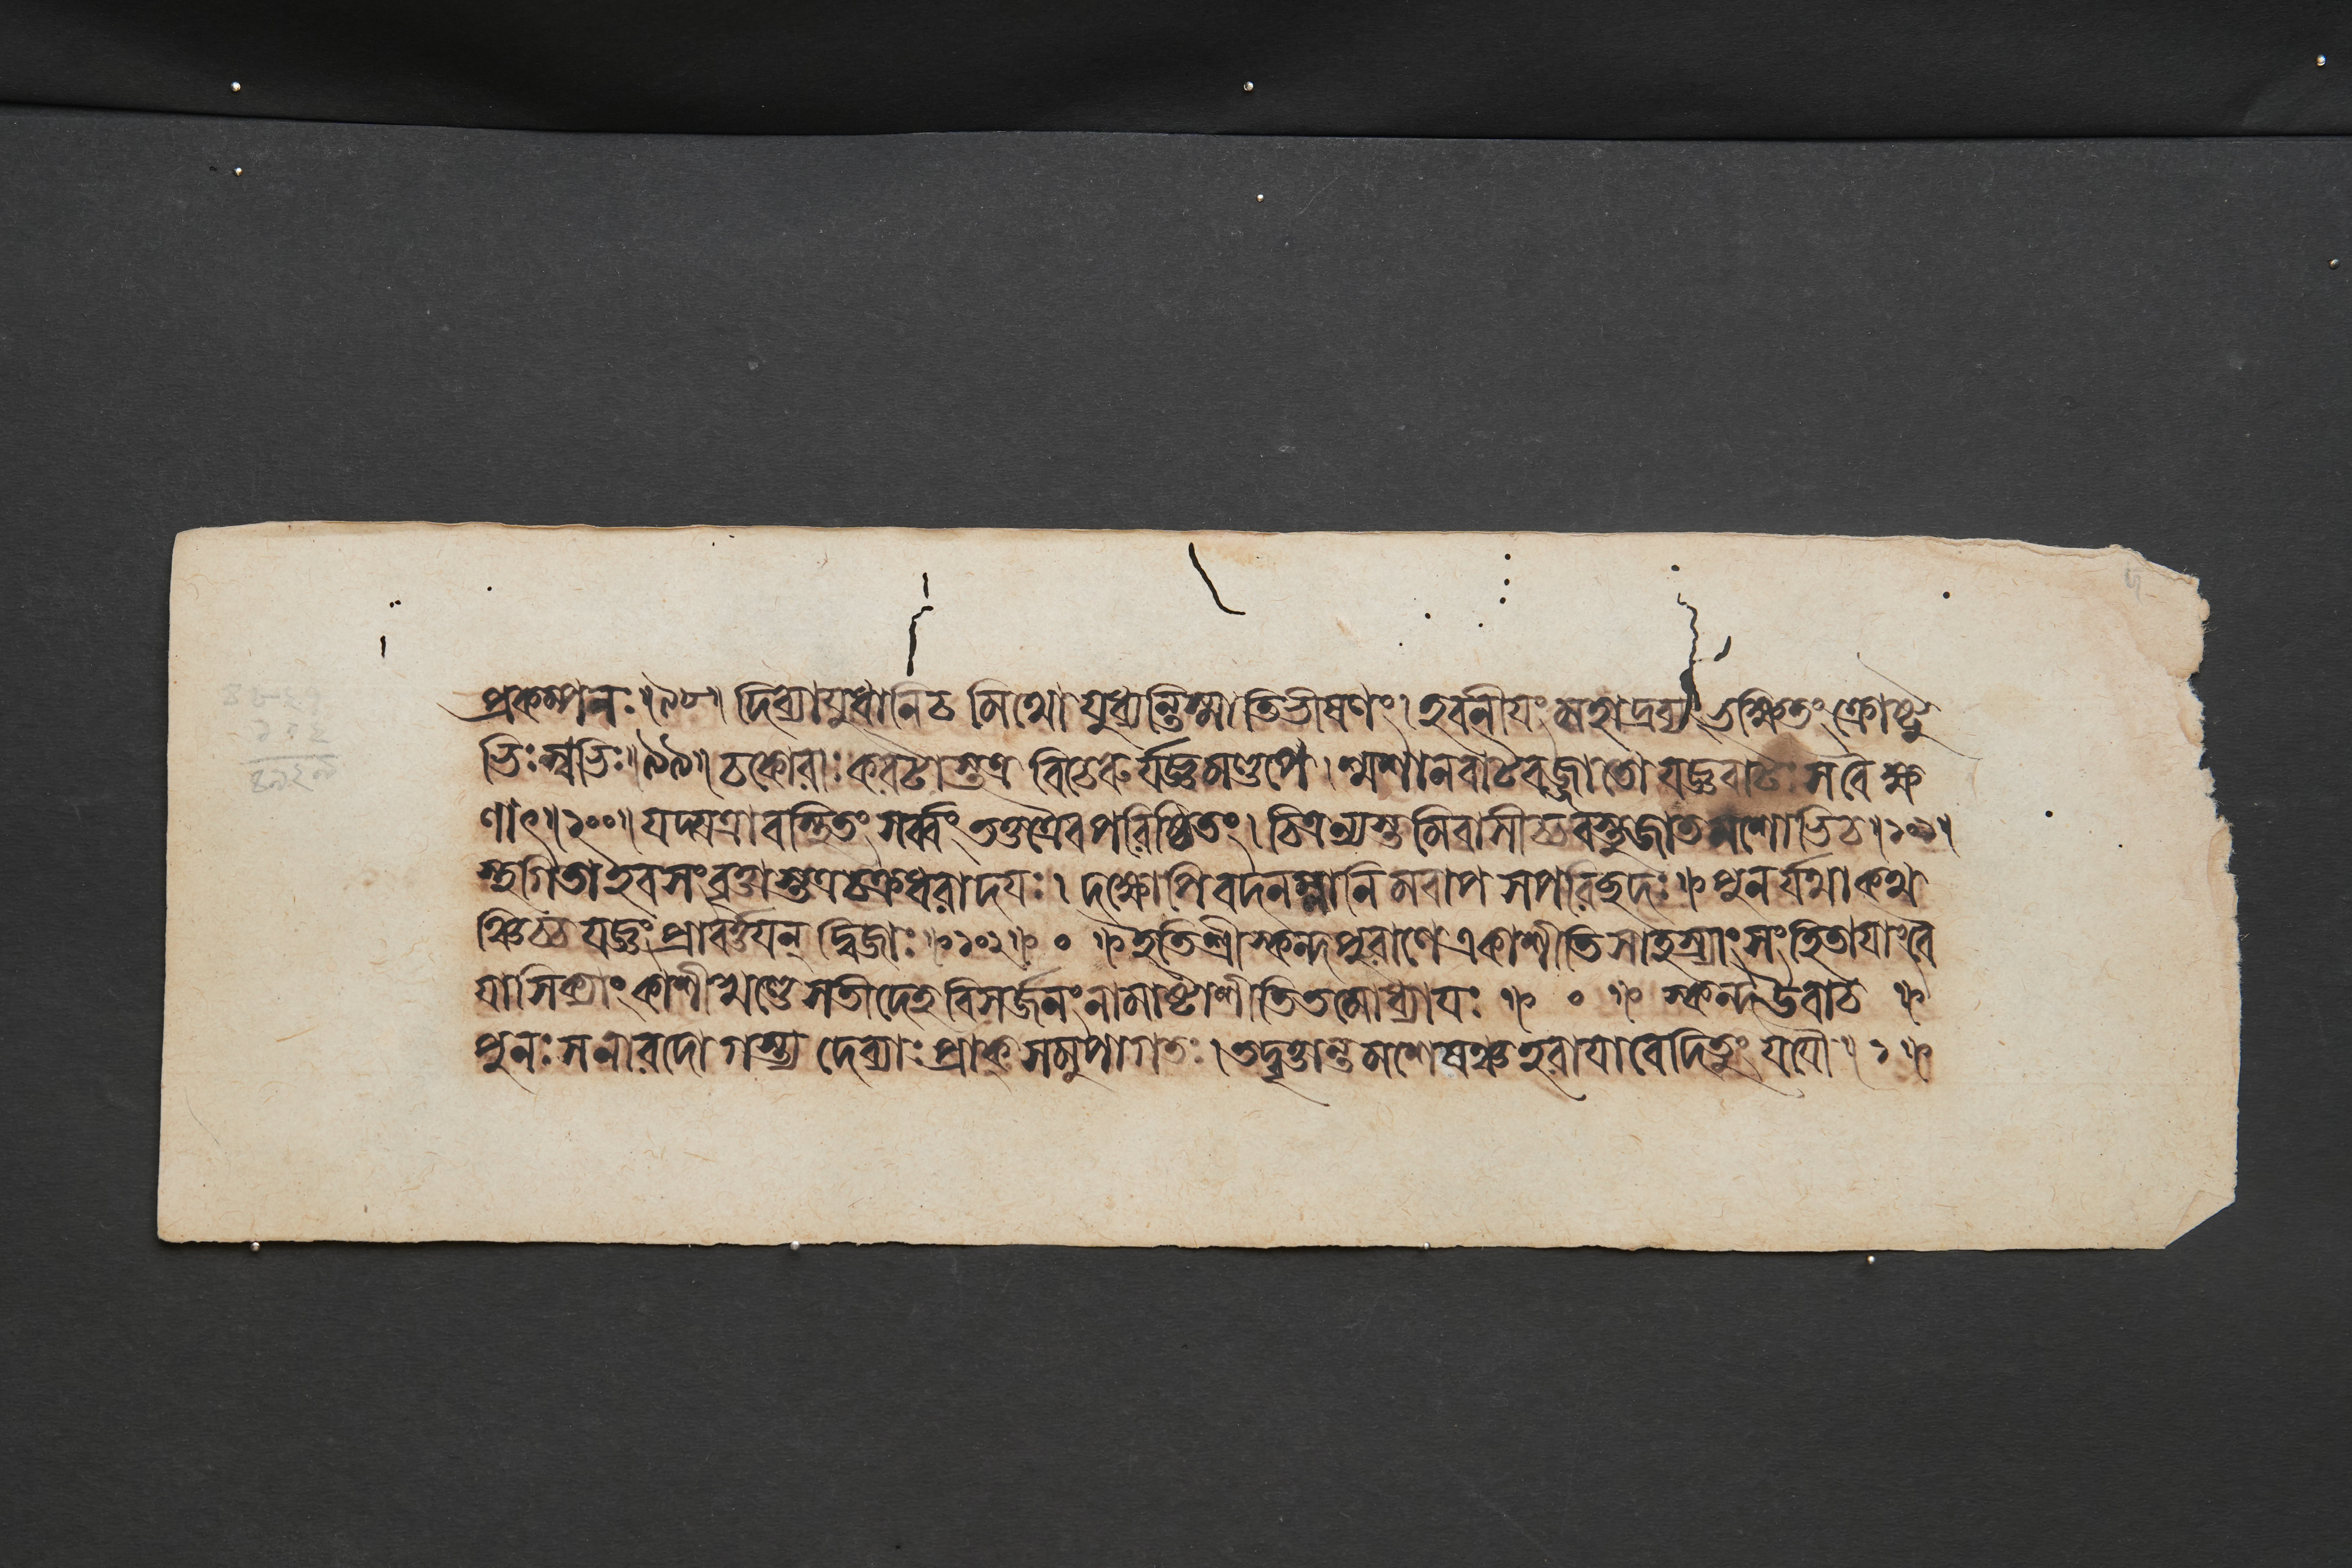 প্রকম্পনঃ॥৯৮॥ দিব্যায়ুধানি চ মিথো যুধ্যন্তি স্মাতিভীষণং। হবনীয়ং মহাদ্রব্যং ভক্ষিতং ক্রোষ্টু
ভিঃ শ্বভিঃ॥৯৯॥ চকোরাঃ করটাস্তত্র বিচেরুর্যজ্ঞমণ্ডপে। শ্মশানবাটবজ্জাতো যজ্ঞবাটঃ স বৈ ক্ষ
ণাৎ॥১০০॥ যদ্যত্রাবস্থিতং সর্ব্বং তত্তত্রৈব পরিষ্ঠিতং। চিত্রন্যস্তমিবাসীচ্চ বস্তুজাতমশোভি চ॥১০১॥
স্থগিতা ইব সংবৃত্তাস্তত্র চক্রধরাদয়ঃ। দক্ষোপি বদনম্লানিমবাপ সপরিচ্ছদঃ॥ পুনর্যথাকথ
ঞ্চিচ্চ যজ্ঞং প্রাবর্ত্তয়ন্ দ্বিজাঃ॥১০২॥ ০ ॥ ইতি শ্রীস্কন্দপুরাণে একাশীতিসাহস্র্যাং সংহিতায়াং বৈ
য়াসিক্যাং কাশীখণ্ডে সতীদেহবিসর্জনং নামাষ্টাশীতিতমোধ্যায়ঃ ॥ ০ ॥ স্কন্দ উবাচ ॥
পুনঃ স নারদোগস্ত্য দেব্যাঃ প্রাক্ সমুপাগতঃ। তদ্বৃত্তান্তমশেষঞ্চ হরায়াবেদিতুং যযৌ॥১॥